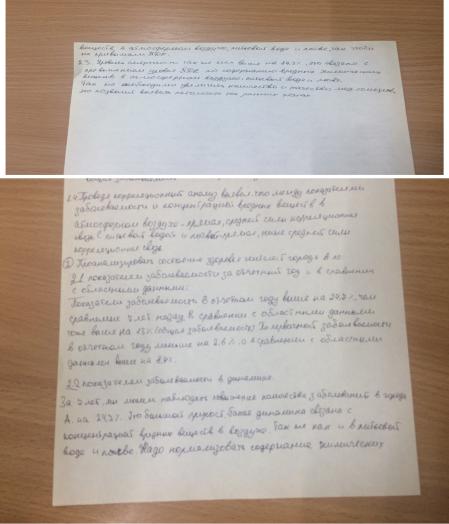 веществ в атмосферном воздухе, питьевой воде и почве, так чтобы
не превышали ПДК.
2.3. Уровень смертности так же был выше на 24,2%, это связано с
превышением уровня ПДК по содержанию вредных химических
веществ в атмосферном воздухе, питьевой воде и почве.
Так же необходимо увеличить количество и
но позволит выявить патологию на ранних этапах
1.4 Проведя корреляционный анализ выявил, что между показателями
заболеваемости и концентрацией вредных веществ в
атмосферном воздухе - прямая, средней силы корреляционная
связь. С питьевой водой и почвой прямая, ниже средней силы
корреляционная связь.
② Проанализировать состояние здоровья жителей города А по
2.1 показателям заболеваемости за отчетный год и в сравнении
с областными данными:
Показатели заболеваемости в отчетном году выше на 24,2%, чем
сравнению 7 лет назад. В сравнении с областными данными
тоже выше на 13% (общая заболеваемость). По первичной заболеваемости
в отчетном году меньше на 2,6%, а в сравнении с областными
данными выше на
2.2 показателям заболеваемости в динамике.
За 7 лет, мы можем наблюдать повышение количества заболеваний в городе
А. на 24,2%. Это большой прирост. Такая динамика связана с
концентрацией вредных веществ в воздухе. Так же как и в питьевой
воде и почве. Надо нормализовать содержание химических